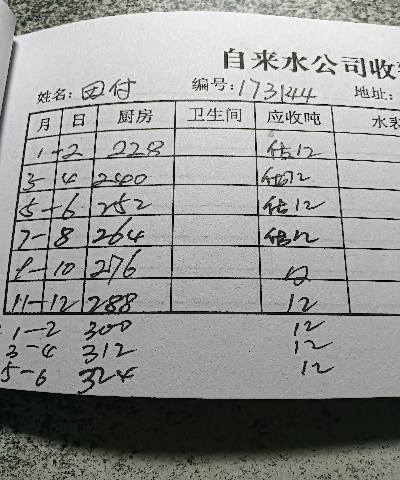 自来水公司收
姓名:田付 编号:173144 地址:
月 日 厨房 卫生间 应收吨 水表
1-2 228 估12
3-4 240 估12
5-6 252 估12
7-8 264 估12
9-10 276 12
11-12 288 12
1-2 300 12
3-4 312 12
5-6 324 12